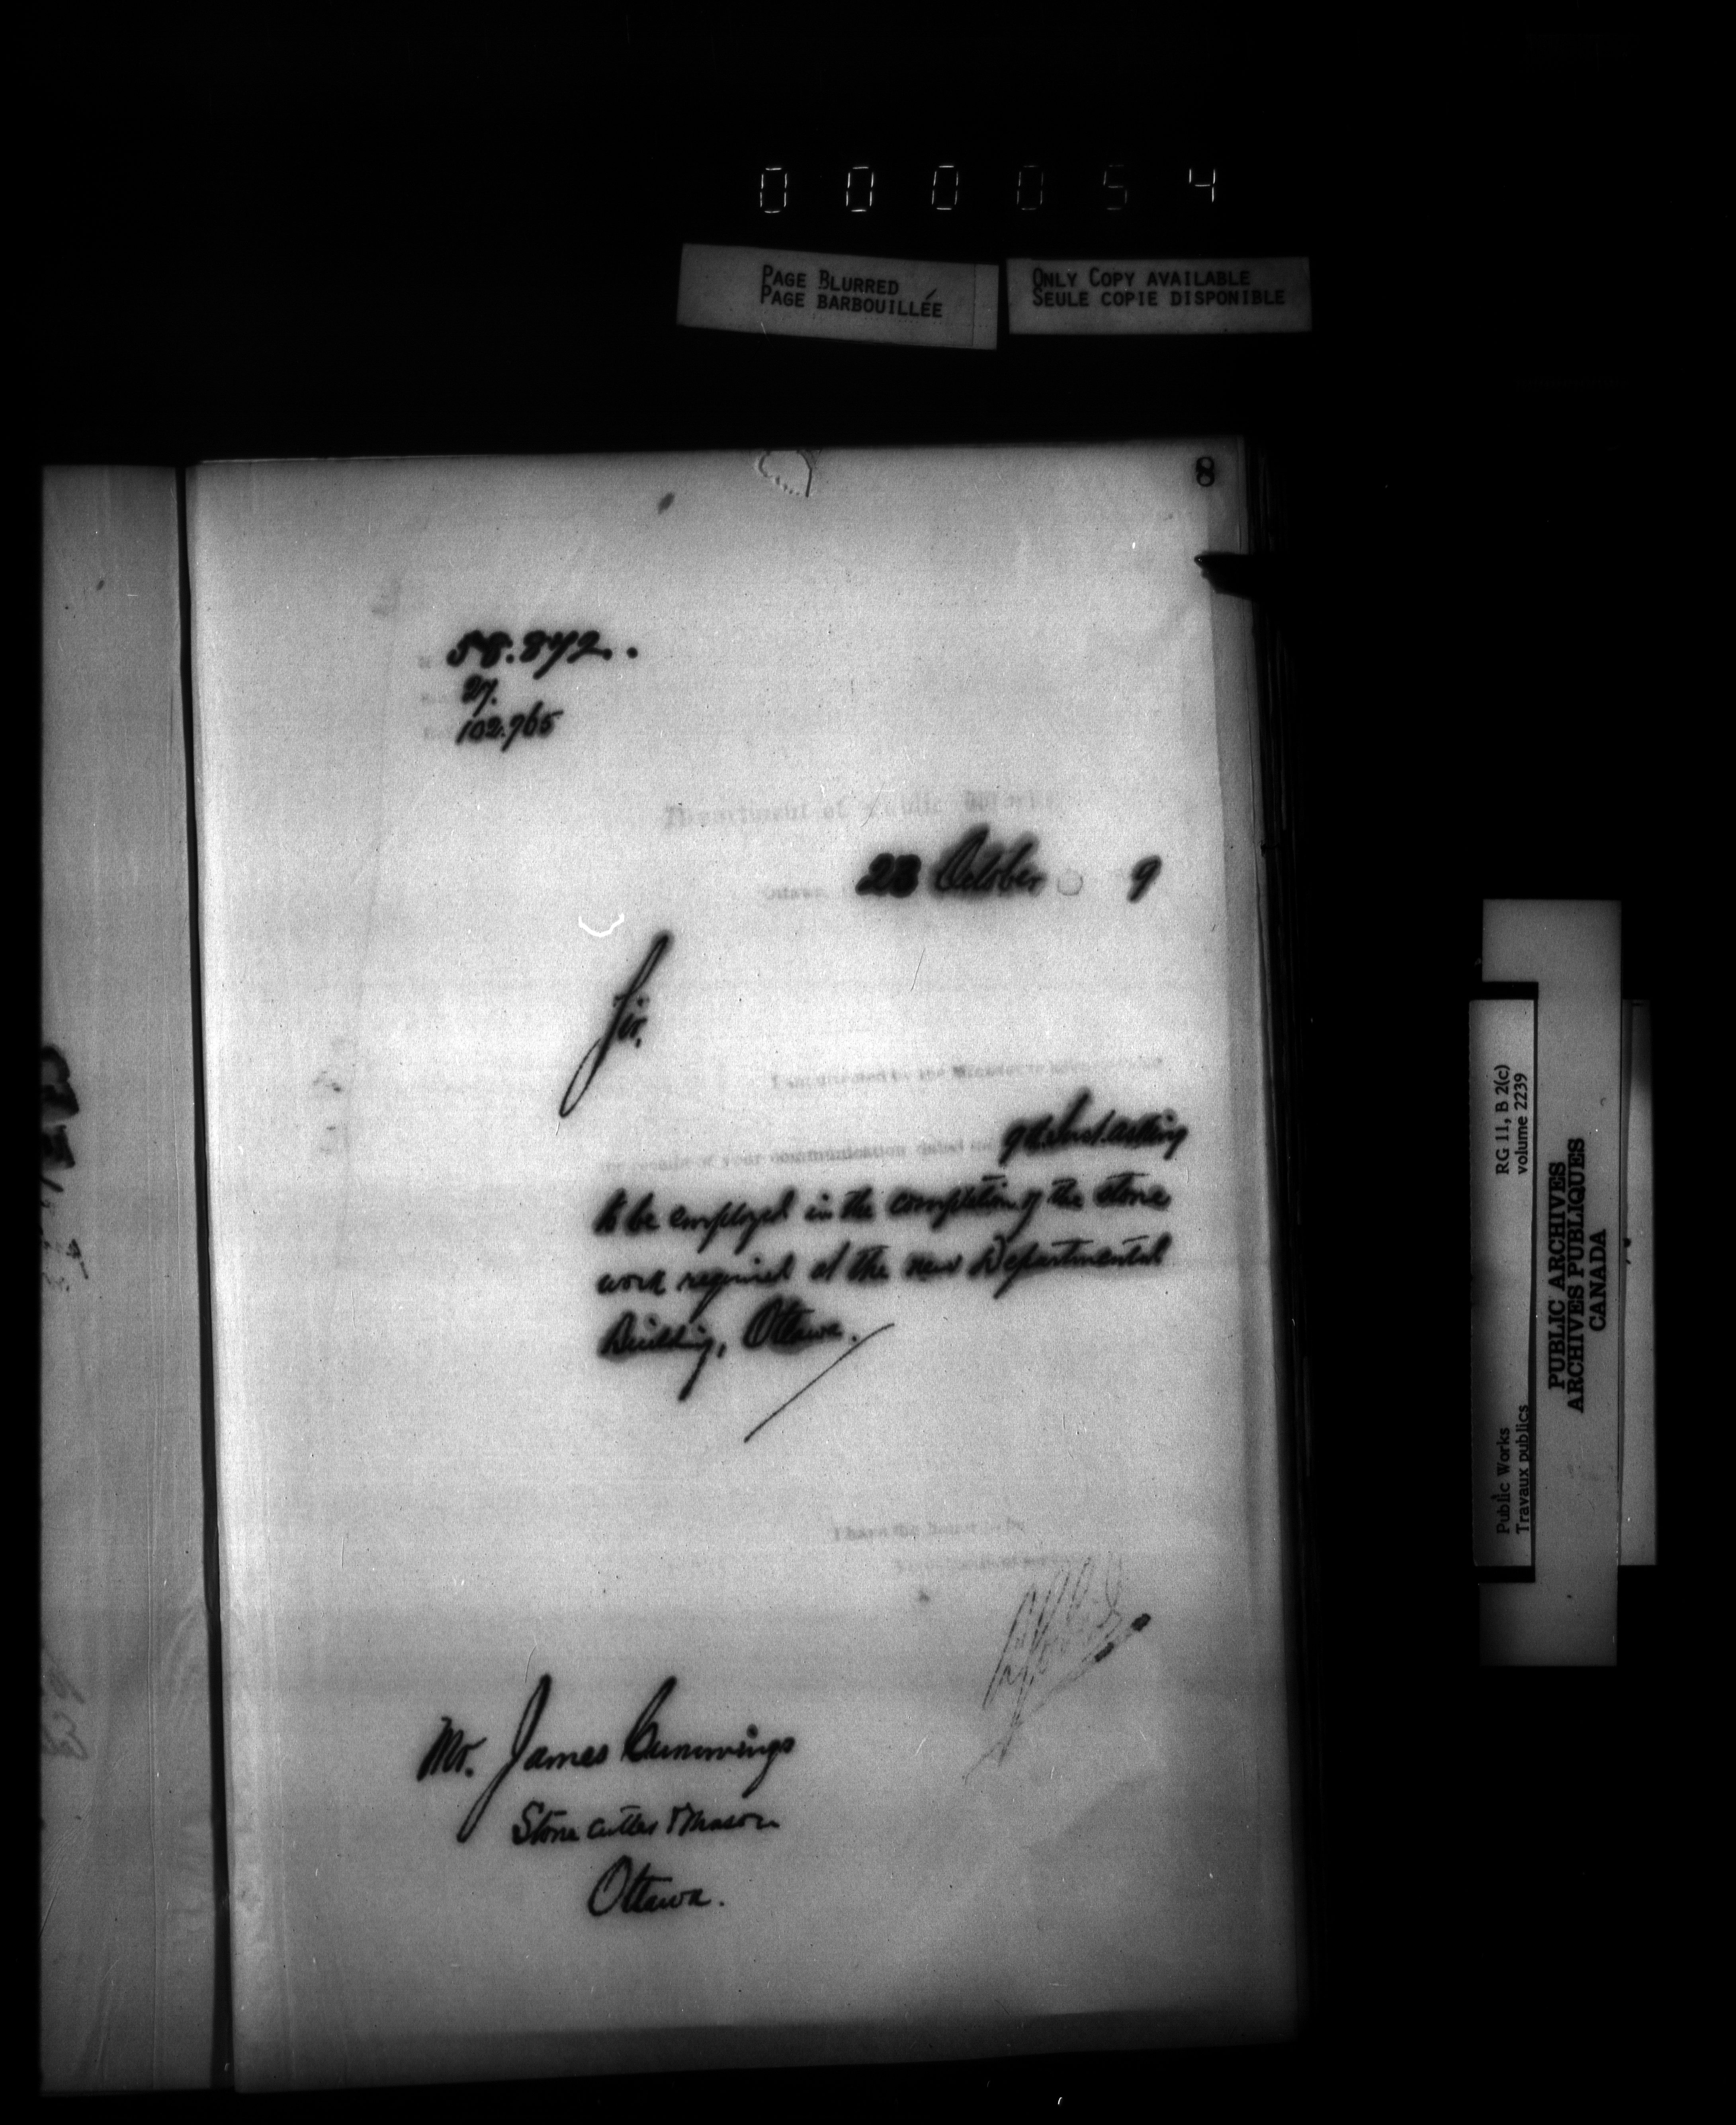 000054
PAGE BLURRED
PAGE BARBOUILLÉE
ONLY COPY AVAILABLE
SEULE COPIE DISPONIBLE
8
58.872.
27.
102.965
Department of Public Works
Ottawa, 23 October 9
Sir,
I am directed by the Minister to
the receipt of your communication dated the 9th Inst. asking
to be employed in the completion of the stone
work required at the new Departmental
Building, Ottawa.
I have the honor to be
Mr. James Cummings
Stone cutter & Mason
Ottawa.
RG 11, B 2(c)
volume 2239
Public Works
Travaux publics
PUBLIC ARCHIVES
ARCHIVES PUBLIQUES
CANADA